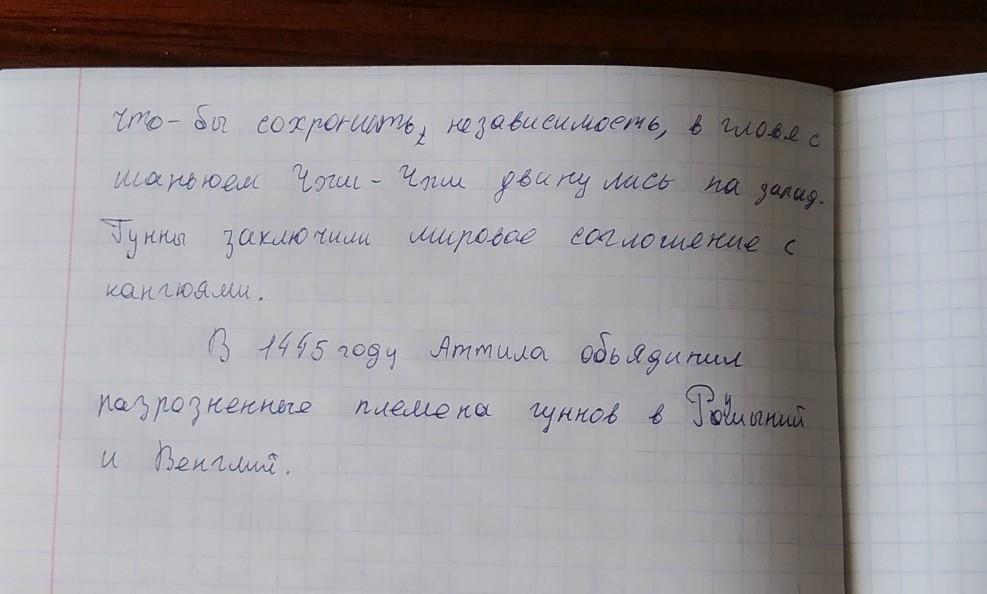 что-бы сохронить, независимость, в гловя с
шаньюем Чжи-Чжи двинулись на запад.
Гунны заключили мировое соглошение с
кангюями.
В 1445 году Аттила обьядинил
разрозненные племена гуннов в Румыний
и Венглий.